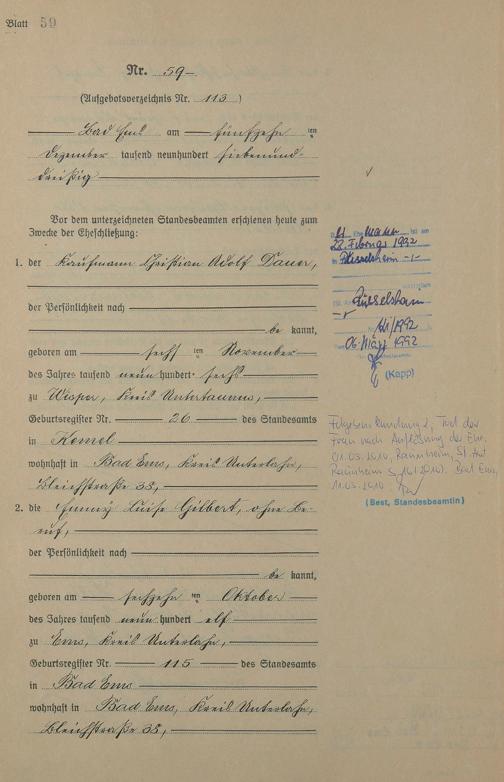 Blatt 59
Nr. 59
(Aufgebotsverzeichnis Nr. 113)
Bad Ems am fünfzehn ten
Dezember tausend neunhundert siebenund-
dreißig
Vor dem unterzeichneten Standesbeamten erschienen heute zum
Zwecke der Eheschließung:
1. der Kaufmann Christian Adolf Dauer,
der Persönlichkeit nach
be kannt,
geboren am sechs ten November
des Jahres tausend neun hundert sechs
zu Wisper, Kreis Untertaunus,
Geburtsregister Nr. 26 des Standesamts
in Kemel
wohnhaft in Bad Ems, Kreis Unterlahn,
Bleichstraße 38,
2. die Luise Gilbert, ohne Be-
ruf,
der Persönlichkeit nach
be kannt,
geboren am sechzehn ten Oktober
des Jahres tausend neun hundert elf
zu Ems, Kreis Unterlahn,
Geburtsregister Nr. 115 des Standesamts
in Bad Ems
wohnhaft in Bad Ems, Kreis Unterlahn,
Bleichstraße 38,
Ehemann ist am
28. Februar 1992
in Rüsselsheim
Rüsselsheim
/1992
06. März 1992
(Kapp)
Folgebeurkundung, Tod der
Frau nach Auflösung der Ehe:
01.03.2010, Raunheim, StAmt
Raunheim S 2010). Bad Ems,
11.03.2010
(Best, Standesbeamtin)